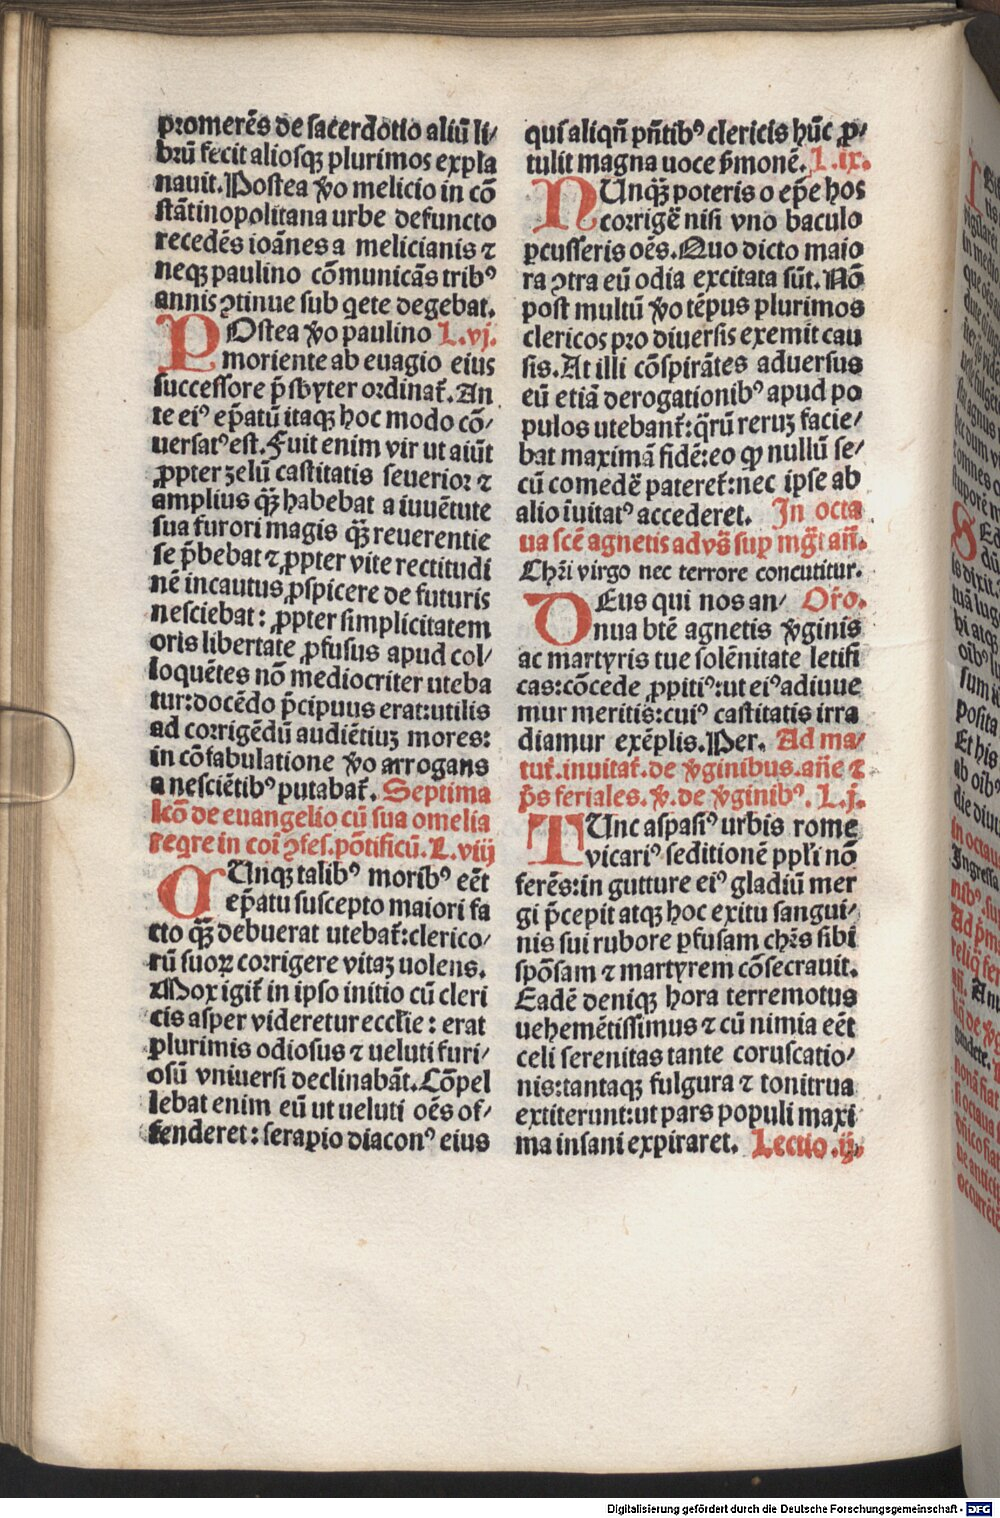 ꝓmerēs de sacerdotio aliū li/
brū fecit aliosqꝫ plurimos expla
nauit. Postea ꝟo melicio in cō
stātinopolitana urbe defuncto
recedēs ioānes a melicianis ⁊
neqꝫ paulino cōmunicās tribꝰ
annis ꝯtinue sub qete degebat.
POstea ꝟo paulino L.vj.
moriente ab euagio eius
successore p̄sbyter ordinat᷑. An
te eiꝰ ep̄atū itaqꝫ hoc modo cō/
uersatꝰ est. Fuit enim vir ut aiūt
ꝓpter zelū castitatis seuerior ⁊
amplius qꝫ̄ habebat a iuuētute
sua furori magis qꝫ̄ reuerentie
se p̄bebat ⁊ ꝓpter vite rectitudi
nē incautus ꝓspicere de futuris
nesciebat: ꝓpter simplicitatem
oris libertate ꝓfusus apud col/
loquētes nō mediocriter uteba
tur: docēdo p̄cipuus erat: utilis
ad corrigēdū audiētiuꝫ mores:
in cōfabulatione ꝟo arrogans
a nesciētibꝰ putabat᷑. Septima
lcō de euangelio cū sua omelia
reqre in coi ꝯfes. pōtificū. L. viij
CUnqꝫ talibꝰ moribꝰ eēt
ep̄atu suscepto maiori fa
cto qꝫ̄ debuerat utebat᷑: clerico/
rū suoꝝ corrigere vitaꝫ uolens.
Mox igit᷑ in ipso initio cū cleri
cis asper videretur eccłie: erat
plurimis odiosus ⁊ ueluti furi/
osū vniuersi declinabāt. Cōpel
lebat enim eū ut ueluti oēs of/
fenderet: serapio diaconꝰ eius
qui aliqn̄ pn̄tibꝰ clericis hūc ꝓ/
tulit magna uoce s̄monē. L.ix.
NUnqꝫ̄ poteris o ep̄e hos
corrigē nisi vno baculo
ꝑcusseris oēs. Quo dicto maio
ra ꝯtra eū odia excitata sūt. Nō
post multū ꝟo tēpus plurimos
clericos pro diuersis exemit cau
sis. At illi cōspirātes aduersus
eū etiā derogationibꝰ apud po
pulos utebant᷑: qrū reruꝫ facie/
bat maximā fidē: eo ꝙ nullū se/
cū comedē pateret᷑: nec ipse ab
alio īuitatꝰ accederet. In octa
ua scē agnetis ad vs̄ suꝑ mg̅t an̄.
Chr̄i virgo nec terrore concutitur.
DEus qui nos an/ Or̄o.
nua btē agnetis ꝟginis
ac martyris tue solēnitate letifi
cas: cōcede ꝓpitiꝰ: ut eiꝰ adiuue
mur meritis: cuiꝰ castitatis irra
diamur exēplis. Per. Ad ma/
tut᷑. inuitat᷑. de ꝟginibus. an̄e ⁊
p̄s feriales. ꝟ. de ꝟginibꝰ. L.j.
TUnc aspasiꝰ urbis rome
vicariꝰ seditionē ppłi nō
ferēs: in gutture eiꝰ gladiū mer
gi p̄cepit atqꝫ hoc exitu sangui/
nis sui rubore ꝑfusam chr̄s sibi
spōsam ⁊ martyrem cōsecrauit.
Eadē deniqꝫ hora terremotus
uehemētissimus ⁊ cū nimia eēt
celi serenitas tante coruscatio/
nis: tantaqꝫ fulgura ⁊ tonitrua
extiterunt: ut pars populi maxi
ma insani expiraret. Lectio.ij.
Digitalisierung gefördert durch die Deutsche Forschungsgemeinschaft - DFG